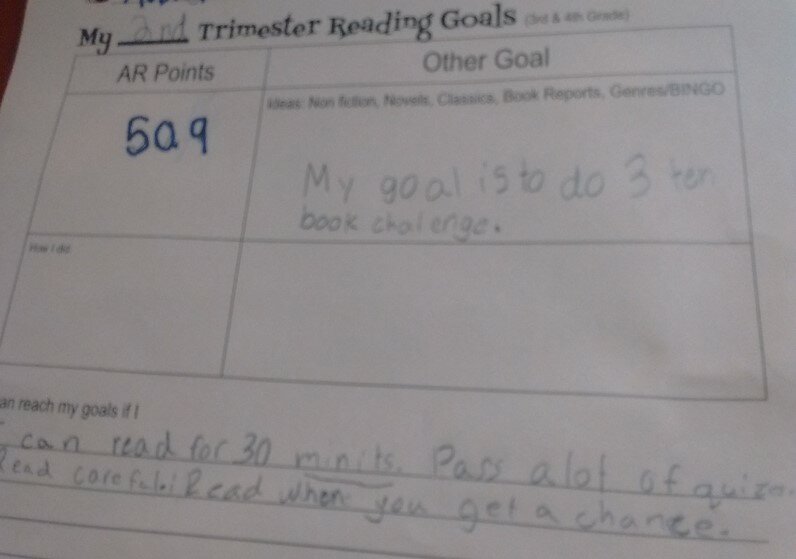 My 2nd Trimester Reading Goals (3rd & 4th Grade)
AR Points
Other Goal
Ideas: Non fiction, Novels, Classics, Book Reports, Genres/BINGO
My goal is to do 3 ten
book chalenge.
How I did
an reach my goals if I
can read for 30 minits. Pass alot of
Read carefel. Read when you get a chance.